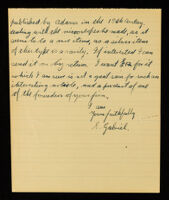 published by Adams in the 19th century
dealing with the microscopes he made, as it
seems to be a rare item, as is
of this type is a rarity. If interested I can
send it on by return. I want for it
which I am sure is not a great sum for such an
interesting article, and a product of one
of the founders of your firm.
I am
Yours faithfully
K. Gabriel.